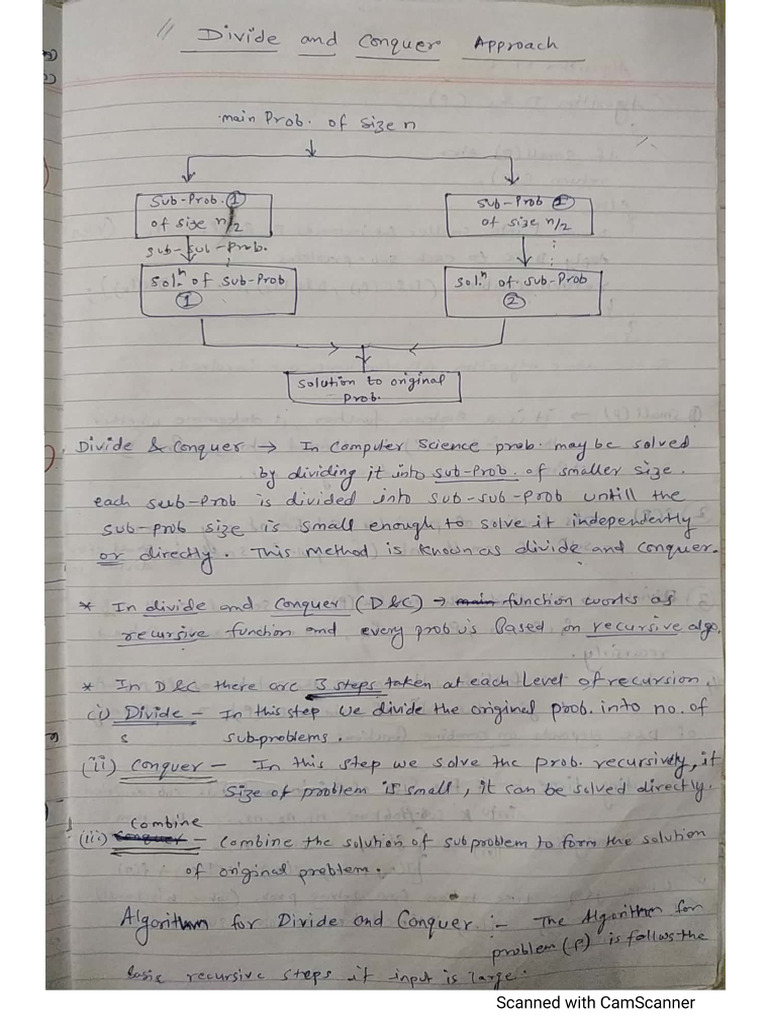 Divide and Conquer Approach
main Prob. of size n
Sub-Prob. ①
of size n/2
Sub-Prob ①
of size n/2
sub-sub-Prob.
Solⁿ. of sub-Prob
①
Solⁿ. of sub-Prob
②
Solution to original
Prob.
Divide & Conquer → In Computer Science prob. may be solved
by dividing it into sub-prob. of smaller size.
each sub-prob is divided into sub-sub-prob untill the
sub-prob size is small enough to solve it independently
or directly. This method is known as divide and conquer.
* In divide and Conquer (D&C) → main function works as
recursive function and every prob is Based on recursive algo.
* In D&C there are 3 steps taken at each Level of recursion.
(i) Divide - In this step we divide the original prob. into no. of
s subproblems.
(ii) Conquer - In this step we solve the prob. recursively, if
Size of problem is small, it can be solved directly.
Combine
(iii) Conquer - Combine the solution of subproblem to form the solution
of original problem.
Algorithm for Divide and Conquer :- The Algorithm for
problem (P) is follows the
basic recursive steps if input is large.
Scanned with CamScanner